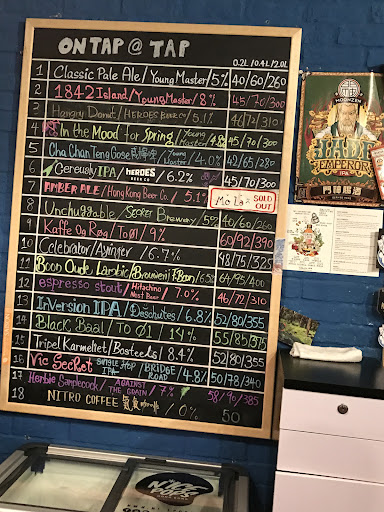 ON TAP @ TAP
0.2L /0.4L/2.0L
1 Classic Pale Ale / Young Master / 5% 40/60/260
2 1842 Island / Young Master / 8% 45/70/300
3 Hangry Donut / HEROES BEER CO / 5.1% 46/72/310
4 In the Mood for Spring / Young Master / 4.8% 45/70/300
5 Cha Chan Teng Gose / Young Master / 4.0% 42/65/280
6 Cereusly IPA / HEROES BEER CO / 6.2% 45/70/300
7 AMBER ALE / Hong Kong Beer Co. / 5.1% Mala SOLD OUT
8 Unchuggable / Secret Brewery / 5% 40/60/260
9 Kaffe Og Røg / To Øl / 9% 60/92/390
10 Celebrator / Ayinger / 6.7% 48/75/325
11 Boon Oude Lambic / Brouwerij Boon / 6.5% 64/95/400
12 espresso stout / Hitachino Nest Beer / 7.0% 46/72/310
13 Inversion IPA / Deschutes / 6.8% 52/80/355
14 Black Baal / To Øl / 14% 55/85/375
15 Tripel Karmeliet / Bosteels / 8.4% 52/80/355
16 Vic Secret SINGLE HOP IPA / BRIDGE ROAD / 4.8% 50/78/340
17 Herbie Samplecock / AGAINST THE GRAIN / 7% 58/90/385
18 NITRO COFFEE / 0% 50
MOONZEN
JADE
EMPEROR
IPA
門神啤酒
NICE
POPS